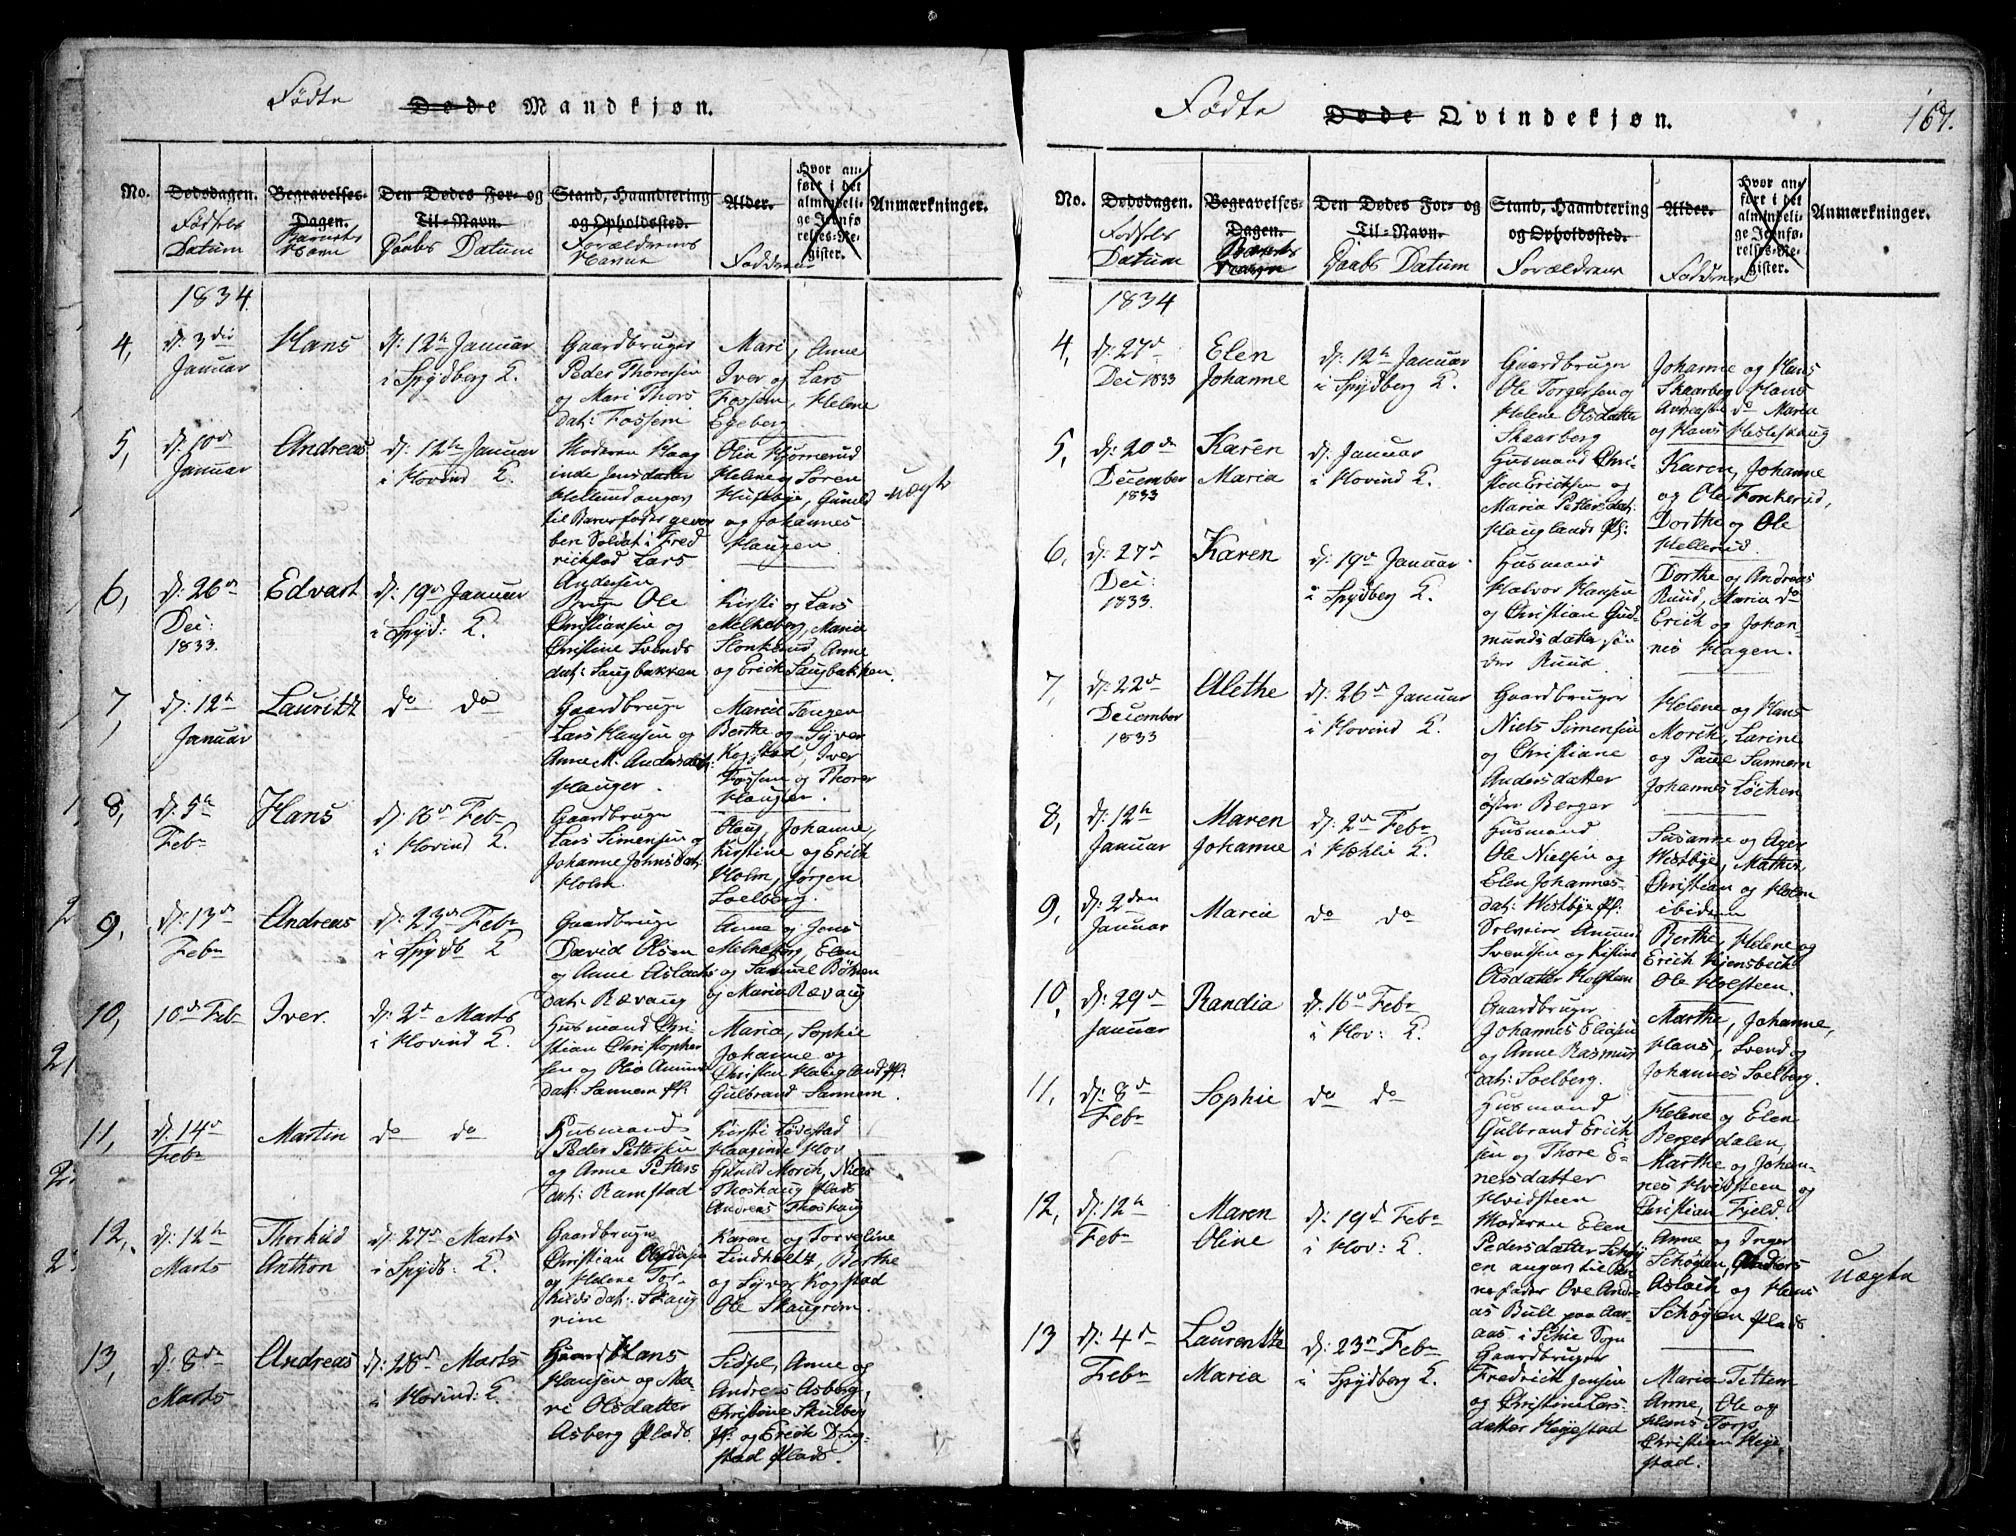 Fødte Døde Mandkjøn.
No.
Dødsdagen.
Fødsels
Datum
Begravelses-
Dagen.
Barnets
Navn
Den Dødes For- og
Til-Navn.
Daabs Datum
Stand, Haandtering
og Opholdssted.
Forældrenes
Navne
Alder.
Faddrene
Hvor an-
ført i det
almindeli-
ge Jevnfø-
relses-Re-
gister.
Anmærkninger.
1834.
4,
d: 3die
Januar
Hans
d: 12te Januar
i Spydberg K.
Gaardbruger
Peder Thoresen
og Mari Thors
dat: Fossem
Mari, Anne
Iver og Lars
Fossem, Helene
Egeberg.
5,
d: 10de
Januar
Andreas
d: 12te Januar
i Hovind K.
Moderen Haag
inde Jensdatter
Hellerud angav
til Barnefader
ben Soldat i Fred
rickstad Lars
Andersen
Olia Hjørnerud
Helene og Søren
Husebye, Gunild
og Johannes
Haugen.
uægte
6,
d: 26de
Dec:
1833.
Edvart
d: 19de Januar
i Spyd: K.
Bruge Ole
Christiansen og
Christine Svends
dat: Laugbakken
Kirsti og Lars
Melheberg, Maria
Anne
og Erich Laugbakken.
7,
d: 12te
Januar
Lauritz
do do
Gaardbruge
Lars Hansen og
Anne M. Andersdat:
Hauger.
Berthe og Syver
Kogstad, Iver
Fossem og Thorer
Haugen.
8,
d: 5te
Febr
Hans
d: 16de Febr
i Hovind K.
Gaardbruge
Lars Simensen og
Johanne Johnsdat:
Holm.
Olaug, Johanne,
Kirstine og Erich
Holm, Jørgen
Soelberg.
9,
d: 13de
Febr
Andreas
d: 23de Febr
i Spydb K
Gaardbruge
David Olsen
og Anne Aslachs
dat: Rævaug
Anne og Jens
Melheberg, Elen
og Samuel Bøhsen
og Maria Rævaug
10,
10de Febr
Iver.
d: 2de Marts
i Hovind K.
Husmand Chri
stian Christopher
sen og Olia Amund
dat: Sannem Pf:
Maria, Sophie
Johanne og
Christen Haug
Gulbrand Sannem.
11,
d: 14de
Febr
Martin
do do
Husmand
Peder Pettersen
og Anne Petters
dat: Ramstad
Kirsti Løvestad
Haaginde Hov
Gunild Morch, Niels
Thoshaug Plads
Andreas Thoshaug
12,
d: 12te
Marts
Thorkild
Anthon
d: 27de Marts
i Spydb: K.
Gaardbruge
Christian
og Helene Tor-
kildsdat: Skaug
rine
Karen og Torveline
Lindholt, Berthe
og Syver Kogstad
Ole Skaugrim.
13,
d: 8de
Marts
Andreas
d: 28de Marts
i Hovind: K.
Gaard Hans
Hansen og Ma-
ri Olsdatter
Asberg Plads.
Sidsel, Anne og
Anders Asberg,
Christine Skulberg
Pf: og Erich Ding
stad Plads.
Fødte Døde Qvindekjøn.
167.
No.
Dødsdagen.
Fødsels
Datum
Begravelses-
Dagen.
Barnets
Navn
Den Dødes For- og
Til-Navn.
Daabs Datum
Stand, Haandtering
og Opholdssted.
Forældrene
Alder.
Faddrene
Hvor an-
ført i det
almindeli-
ge Jevnfø-
relses-Re-
gister.
Anmærkninger.
1834
4,
d: 27de
Dec 1833
Elen
Johanne
d: 12te Januar
i Spydberg K.
Gaardbruger
Ole Torgersen og
Helene Olsdatter
Skaarberg
Johanne og Hans
Skaarberg Hans
Andreasen do Maria
og Hans Hesleskaug
5,
d: 20de
December
1833
Karen
Maria
d: Januar
i Hovind K.
Husmand Chri-
sten Ericksen og
Maria Pettersdat:
Hauglands Pf:
Karen, Johanne
og Ole Fonkerud,
Dorthe og Ole
Hellerud.
6,
d: 27de
Dec:
1833.
Karen
d: 19de Januar
i Spydberg K.
Husmand
Halvor Hansen
og Christian Gud
mundsdatter søn
dre Ruud
Dorthe og Andreas
Ruud, Maria do
Erich og Johan-
nes Hagen.
7,
d: 22de
December
1833
Alethe
d: 26de Januar
i Hovind K.
Gaardbruger
Niels Simensen
og Christiane
Andersdatter
øster Berger
Helene og Hans
Morch, Larine
og Paul Sannem
Johannes Løchen
8,
d: 12te
Januar
Maren
Johanne
d: 2de Febr
i Hæhlie K.
Husmand
Ole Nielsen og
Elen Johannes-
dat: Westbye Pf:
Susanne og Ager
Westbye, Mathis,
Christian og Holm
ibidem
9,
d: 2den
Januar
Maria
do do
Selveier Amund
Svendsen og Kistine
Olsdatter Holsteen
Berthe, Helene og
Erich Hjensbech
Ole Holsteen.
10,
d: 29de
Januar
Randia
d: 16de Febr
i Hov: K.
Gaardbruger
Johannes Eliasen
og Anne Rasmus
dat: Soelberg.
Marthe, Johanne,
Hans, Svend og
Johannes Soelberg.
11,
d: 8de
Febr
Sophie
do do
Husmand
Gulbrand Erich
sen og Thore E-
nersdatter
Hvidsteen
Helene og Elen
Bergerdalen,
Marthe og Johan-
nes Hvidsteen og
Christian Fjeld.
12,
d: 12te
Febr
Maren
Oline
d: 19de Febr
i Hov: K.
Moderen Elen
Pedersdatter Schøy
en angav til Bar
nefader Ove And
reas Bull paa Aar-
aas i Schie Sogn
Anne og Inger
Schøyen, Anders
Aslach og Hans
Schøyen Plads.
Uægte
13
d: 4de
Febr
Laurentze
Maria
d: 23de Febr
i Spydberg K.
Gaardbruger
Fredrich Jensen
og Christine Lars-
datter Heyestad
Maria Tettem
Anne, Ole og
Hans Torp
Christian Heye-
stad.